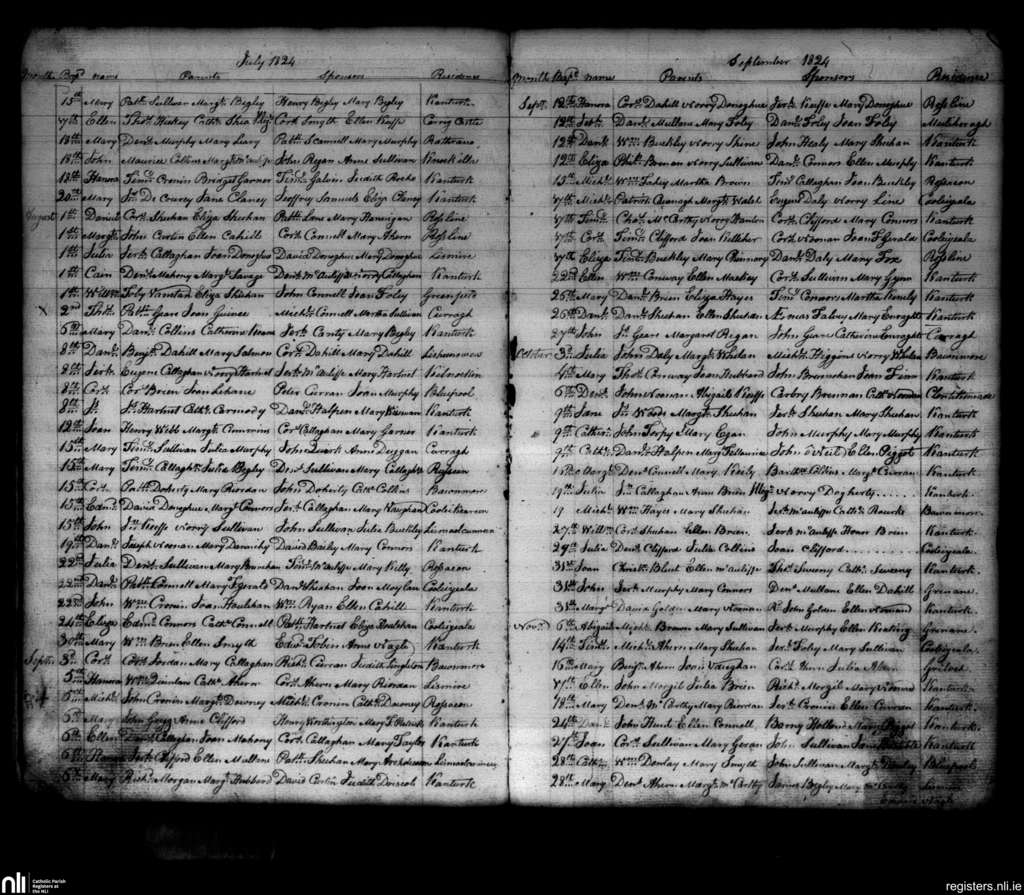 July 1824
Month Bap.d name Parents Sponsors Residence
15th Mary Patk. Sullivan Margt. Begley Henry Begley Mary Begley Kanturk
17th Ellen Thos. Hickey Cathe. Shea Corns. Smyth Ellen Keeffe
18th Mary Denis Murphy Mary Leary Patk. Scannell Mary Murphy
18th John Maurice Collins John Regan Anne Sullivan
18th Hanora Timy. Cronin Bridget Garner Timy. Galvin Judith Roche Kanturk
20th Mary Jno. De Courcy Jane Clancy Jeoffry Samuels Eliza Clancy Kanturk
August 1st Daniel Corns. Sheehan Eliza Sheehan Patk. Lane Mary Hannigan Rossline
1st Margt. John Curtin Ellen Cahill Corns. Connell Mary Ahern Rossline
1st Julia Jerh. Callaghan Joan Donoghue David Donoghue Mary Donoghue Lismire
1st Cain Denis Mahony Margt. Savage Denis McAuliffe Norry Callaghan Kanturk
1st Willm. Toby Eliza Sheehan John Connell Joan Foley
X 2nd Thos. Patk. Gear Joan Guinee Michl. Connell Martha Sullivan Curragh
6th Mary Danl. Collins Catherine Keane Jerh. Canty Mary Begley Kanturk
8th Danl. Benjn. Dahill Mary Salmon Corns. Dahill Mary Dahill
8th Jerh. Eugene Callaghan Norry Hartnet Jerh. McAuliffe Mary Hartnet
8th Corns. Corns. Brien Joan Lehane Peter Curran Joan Murphy Bluepool
8th Js. Js. Hartnet Cathe. Carmody Danl. Halpen Mary Kanturk
12th Joan Henry Webb Margt. Cummins Corns. Callaghan Mary Garner Kanturk
15th Mary Timy. Sullivan Julia Murphy John Quirk Anne Duggan Curragh
15th Mary Timy. Callaghan Julia Begley Denis Sullivan Mary Callaghan Rossacon
15th Corns. Patk. Doherty Mary Riordan John Doherty Cathe. Collins Bawnmore
15th Edmd. David Donoghue Mary Connors Jerh. Callaghan Mary
15th John Jas. Keeffe Norry Sullivan John Sullivan Julia Buckley
19th Danl. Joseph Noonan Mary David Bailey Mary Connors Kanturk
22nd Julia Denis Sullivan Mary Timy. McAuliffe Mary Kelly Rossacon
22nd Danl. Patk. Connell Mary Fgerald Danl. Sheehan Joan Moylan Cooligeala
22nd John Wm. Cronin Joan Houlehan Wm. Ryan Ellen Cahill Kanturk
24th Eliza Edmd. Connors Cathe. Connell Patk. Hartnet Eliza Houlehan Cooligeala
30th Mary Wm. Brien Ellen Smyth Edmd. Tobin Anne Nagle Kanturk
Septr. 3rd Corns. Corns. Jordan Mary Callaghan Richd. Curran Judith Singleton Bawnmore
5th Honora Wm. Quinlan Cathe. Ahern Corns. Ahern Mary Riordan Lismire
5th Michl. John Cronin Margt. Downey Michl. Cronin Cathe. Downey Rossacon
5th Mary John Gregg Anne Clifford Henry Worthington Mary Kanturk
6th Ellen Danl. Callaghan Joan Mahony Corns. Callaghan Mary Taylor Kanturk
6th Hanora Jerh. Clifford Ellen Mullane Patk. Sheehan Mary
6th Mary Richd. Morgan Margt. Hubbard David Curtin Judith Driscoll Kanturk
September 1824
Month Bap.d name Parents Sponsors Residence
Sept. 12th Hanora Corns. Dahill Norry Donoghue Jerh. Keeffe Mary Donoghue Rossline
12th Jerh. Danl. Mullane Mary Foley Danl. Foley Joan Foley
12th Danl. Wm. Buckley Norry Shine John Healy Mary Sheehan Kanturk
12th Eliza Norry Sullivan Danl. Connors Ellen Murphy Kanturk
15th Michl. Wm. Fahey Martha Brown Timy. Callaghan Joan Buckley Rossacon
17th Michl. Patrick Cavanagh Margt. Walsh Eugene Daly Norry Line Cooligeala
17th Timy. Chas. McCarthy Norry Hanlon Corns. Clifford Mary Connors Kanturk
17th Corns. Timy. Clifford Joan Kelliher Corns. Noonan Joan FGerald Cooligeala
17th Eliza Timy. Buckley Mary Danl. Daly Mary Fox Rossline
22nd Ellen Wm. Conway Ellen Mackey Corns. Sullivan Mary Kanturk
26th Mary Danl. Brien Eliza Hayes Timy. Connors Martha Keeily Kanturk
26th Danl. Danl. Sheehan Ellen Sheehan Eneas Falvey Mary Kanturk
27th John Js. Gear Margaret Regan John Gear Catherine Curragh
October 3rd Julia John Daly Margt. Whelan Michl. Higgins Norry Whelan Bawnmore
4th Mary Thos. Conway Joan Hubbard John Bresnehan Joan Finn Kanturk
6th Denis John Noonan Abigail Keeffe Corbry Brennan Cathe. Noonan
9th Jane Js. Woods Margt. Sheehan Jerh. Sheehan Mary Sheehan Kanturk
9th Cathe. John Torpy Mary Egan John Murphy Mary Murphy Kanturk
9th Cathe. Danl. Halpen Mary John Ellen Piggot Kanturk
15th Margt. Denis Connell Mary Keeily Bartw. Collins Mary Curran Kanturk
19th Julia Jno. Callaghan Ann Brien Norry Dogherty Kanturk
19 Michl. Wm. Hayes Mary Sheehan Jerh. McAuliffe Cathe. Rourke Bawnmore
27th Willm. Corns. Sheehan Ellen Brien Jerh. McAuliffe Honor Brien Kanturk
29th Julia Denis Clifford Julia Collins Joan Clifford Cooligeala
31st Joan Christr. Blunt Ellen McAuliffe Thos. Sweeny Cathe. Sweeny Kanturk
31st John Jerh. Murphy Mary Connors Denis Mullane Ellen Dahill Greenane
31st Mary David Golden Mary Noonan Rd. John Golden Ellen Noonan Kanturk
Novr. 6th Abigail Michl. Brown Mary Sullivan Jerh. Murphy Ellen Keating Greenane
14th Timy. Michl. Ahern Mary Sheehan Jerh. Foley Mary Sullivan Cooligeala
16th Mary Benjn. Ahern Joan Vaughan Corns. Ahern Julia Ahern
17th Ellen John Morgil Julia Brien Richd. Morgil Mary Noonan Kanturk
18th Mary Denis McCarthy Mary Riordan Jerh. Cronin Ellen Curran Kanturk
24th Danl. John Hunt Ellen Connell Barry Holland Mary Piggot Kanturk
27th Joan Corns. Sullivan Mary Geran John Sullivan Jane Kanturk
28th Cathe. Wm. Dunlay Mary Smyth John Sullivan Margt. Dunlay Bluepool
28th Mary Denis Ahern Margt. McCarthy James Begley Mary McCarthy Lismire
nli
Catholic Parish
Registers at
the NLI
registers.nli.ie